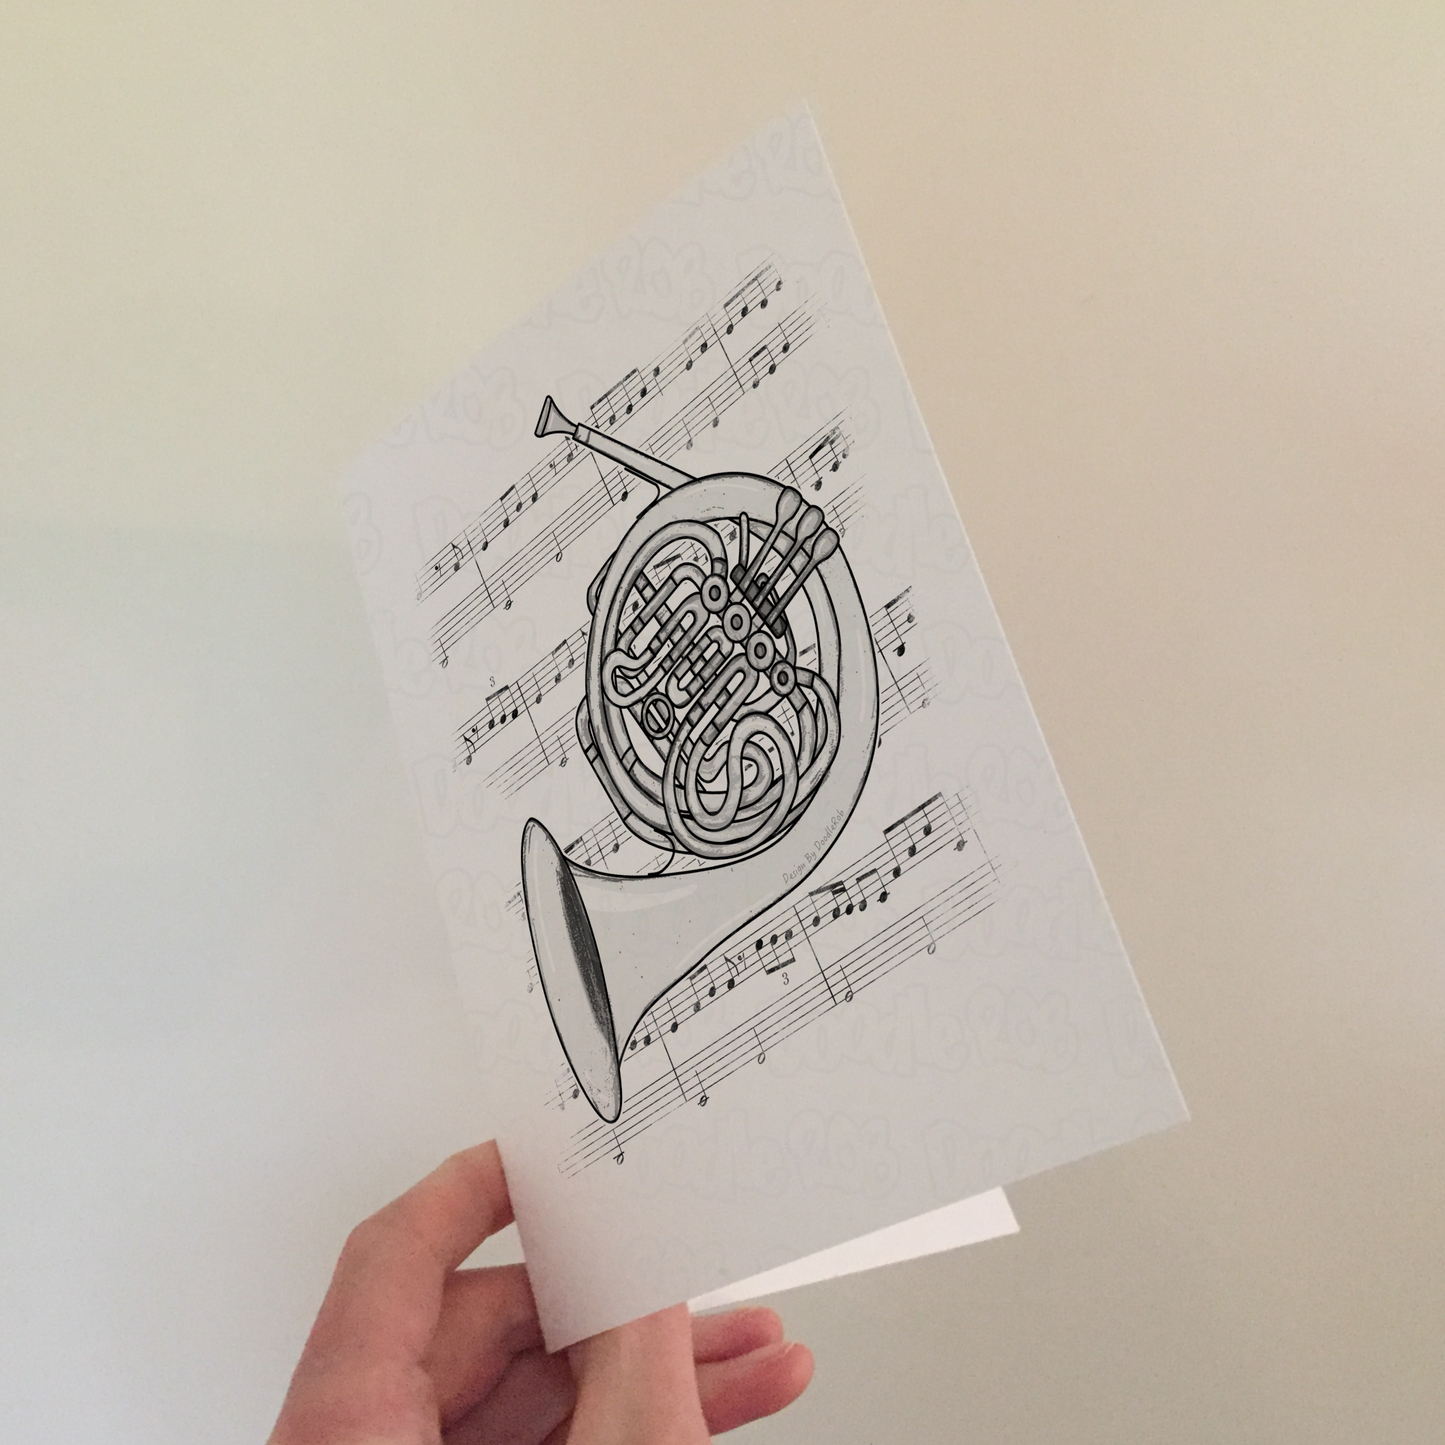 3
Design By DoodleRob
3